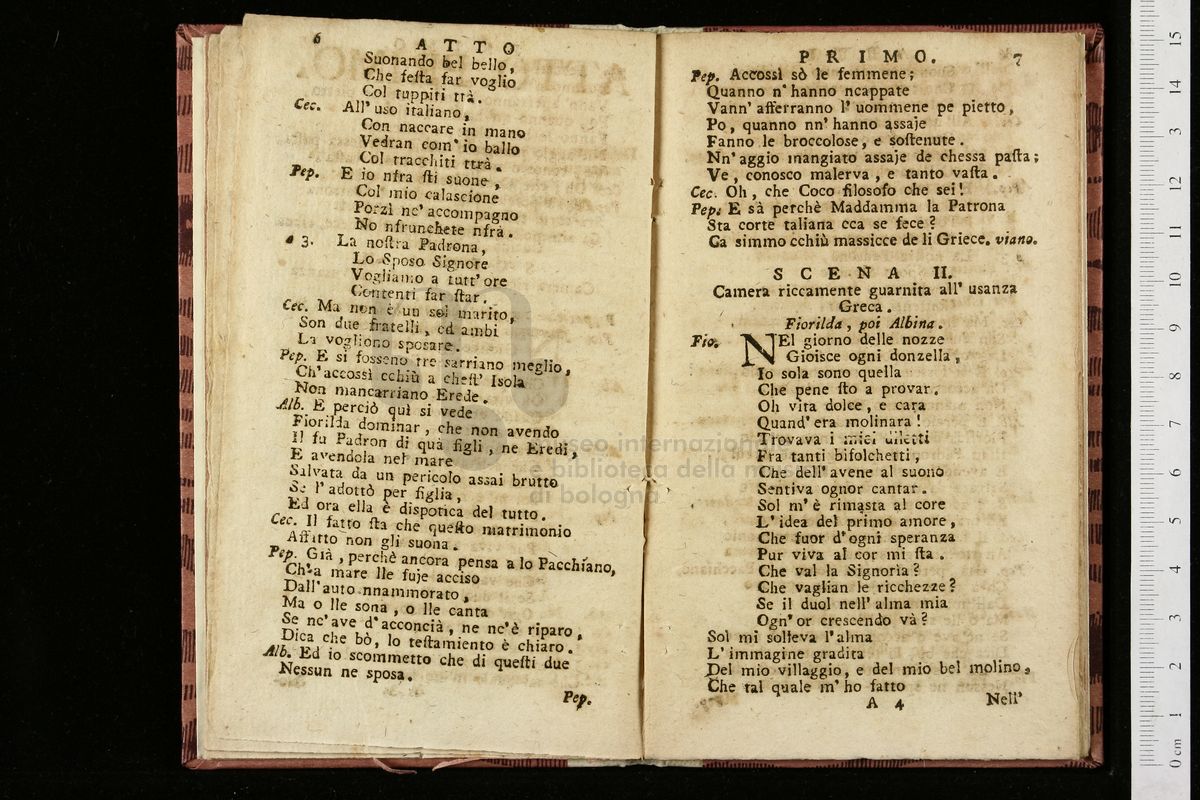 6
A T T O
Suonando bel bello,
Che festa far voglio
Col tuppiti trà.
Cec. All' uso italiano,
Con naccare in mano
Vedran com' io ballo
Col tracchiti ttrà.
Pep. E io nfra sti suone,
Col mio calascione
Porzì nc' accompagno
No nfrunchete nfrà.
a 3. La nostra Padrona,
Lo Sposo Signore
Vogliamo a tutt' ore
Contenti far star.
Cec. Ma non è un sol marito,
Son due fratelli, ed ambi
La vogliono sposare.
Pep. E si fosseno tre sarriano meglio,
Ch'accossì cchiù a chest' Isola
Non mancarriano Erede.
Alb. E perciò quì si vede
Fiorilda dominar, che non avendo
Il fu Padron di quà figli, ne Eredi,
E avendola nel mare
Salvata da un pericolo assai brutto
Se l'adottò per figlia,
Ed ora ella è dispotica del tutto.
Cec. Il fatto sta che questo matrimonio
Affatto non gli suona.
Pep. Già, perchè ancora pensa a lo Pacchiano,
Ch'a mare lle fuje acciso
Dall'auto nnammorato,
Ma o lle sona, o lle canta
Se nc'ave d'acconcià, ne nc'è riparo,
Dica che bò, lo testamiento è chiaro.
Alb. Ed io scommetto che di questi due
Nessun ne sposa.
Pep.
P R I M O. 7
Pep. Accossì sò le femmene;
Quanno n' hanno ncappate
Vann' afferranno l' uommene pe pietto,
Po, quanno nn' hanno assaje
Fanno le broccolose, e sostenute.
Nn' aggio mangiato assaje de chessa pasta;
Ve, conosco malerva, e tanto vasta.
Cec. Oh, che Coco filosofo che sei!
Pep. E sà perchè Maddamma la Patrona
Sta corte taliana cca se fece?
Ca simmo cchiù massicce de li Griece. viano.
S C E N A II.
Camera riccamente guarnita all' usanza
Greca.
Fiorilda, poi Albina.
Fio. NEl giorno delle nozze
Gioisce ogni donzella,
Io sola sono quella
Che pene sto a provar.
Oh vita dolce, e cara
Quand' era molinara!
Trovava i miei diletti
Fra tanti bifolchetti,
Che dell' avene al suono
Sentiva ognor cantar.
Sol m' è rimasta al core
L' idea del primo amore,
Che fuor d' ogni speranza
Pur viva al cor mi sta.
Che val la Signoria?
Che vaglian le ricchezze?
Se il duol nell' alma mia
Ogn' or crescendo và?
Sol mi solleva l'alma
L' immagine gradita
Del mio villaggio, e del mio bel molino,
Che tal quale m' ho fatto
A 4 Nell'
museo internazionale
e biblioteca della musica
di bologna
15
14
13
12
11
10
9
8
7
6
5
4
3
2
1
0 cm